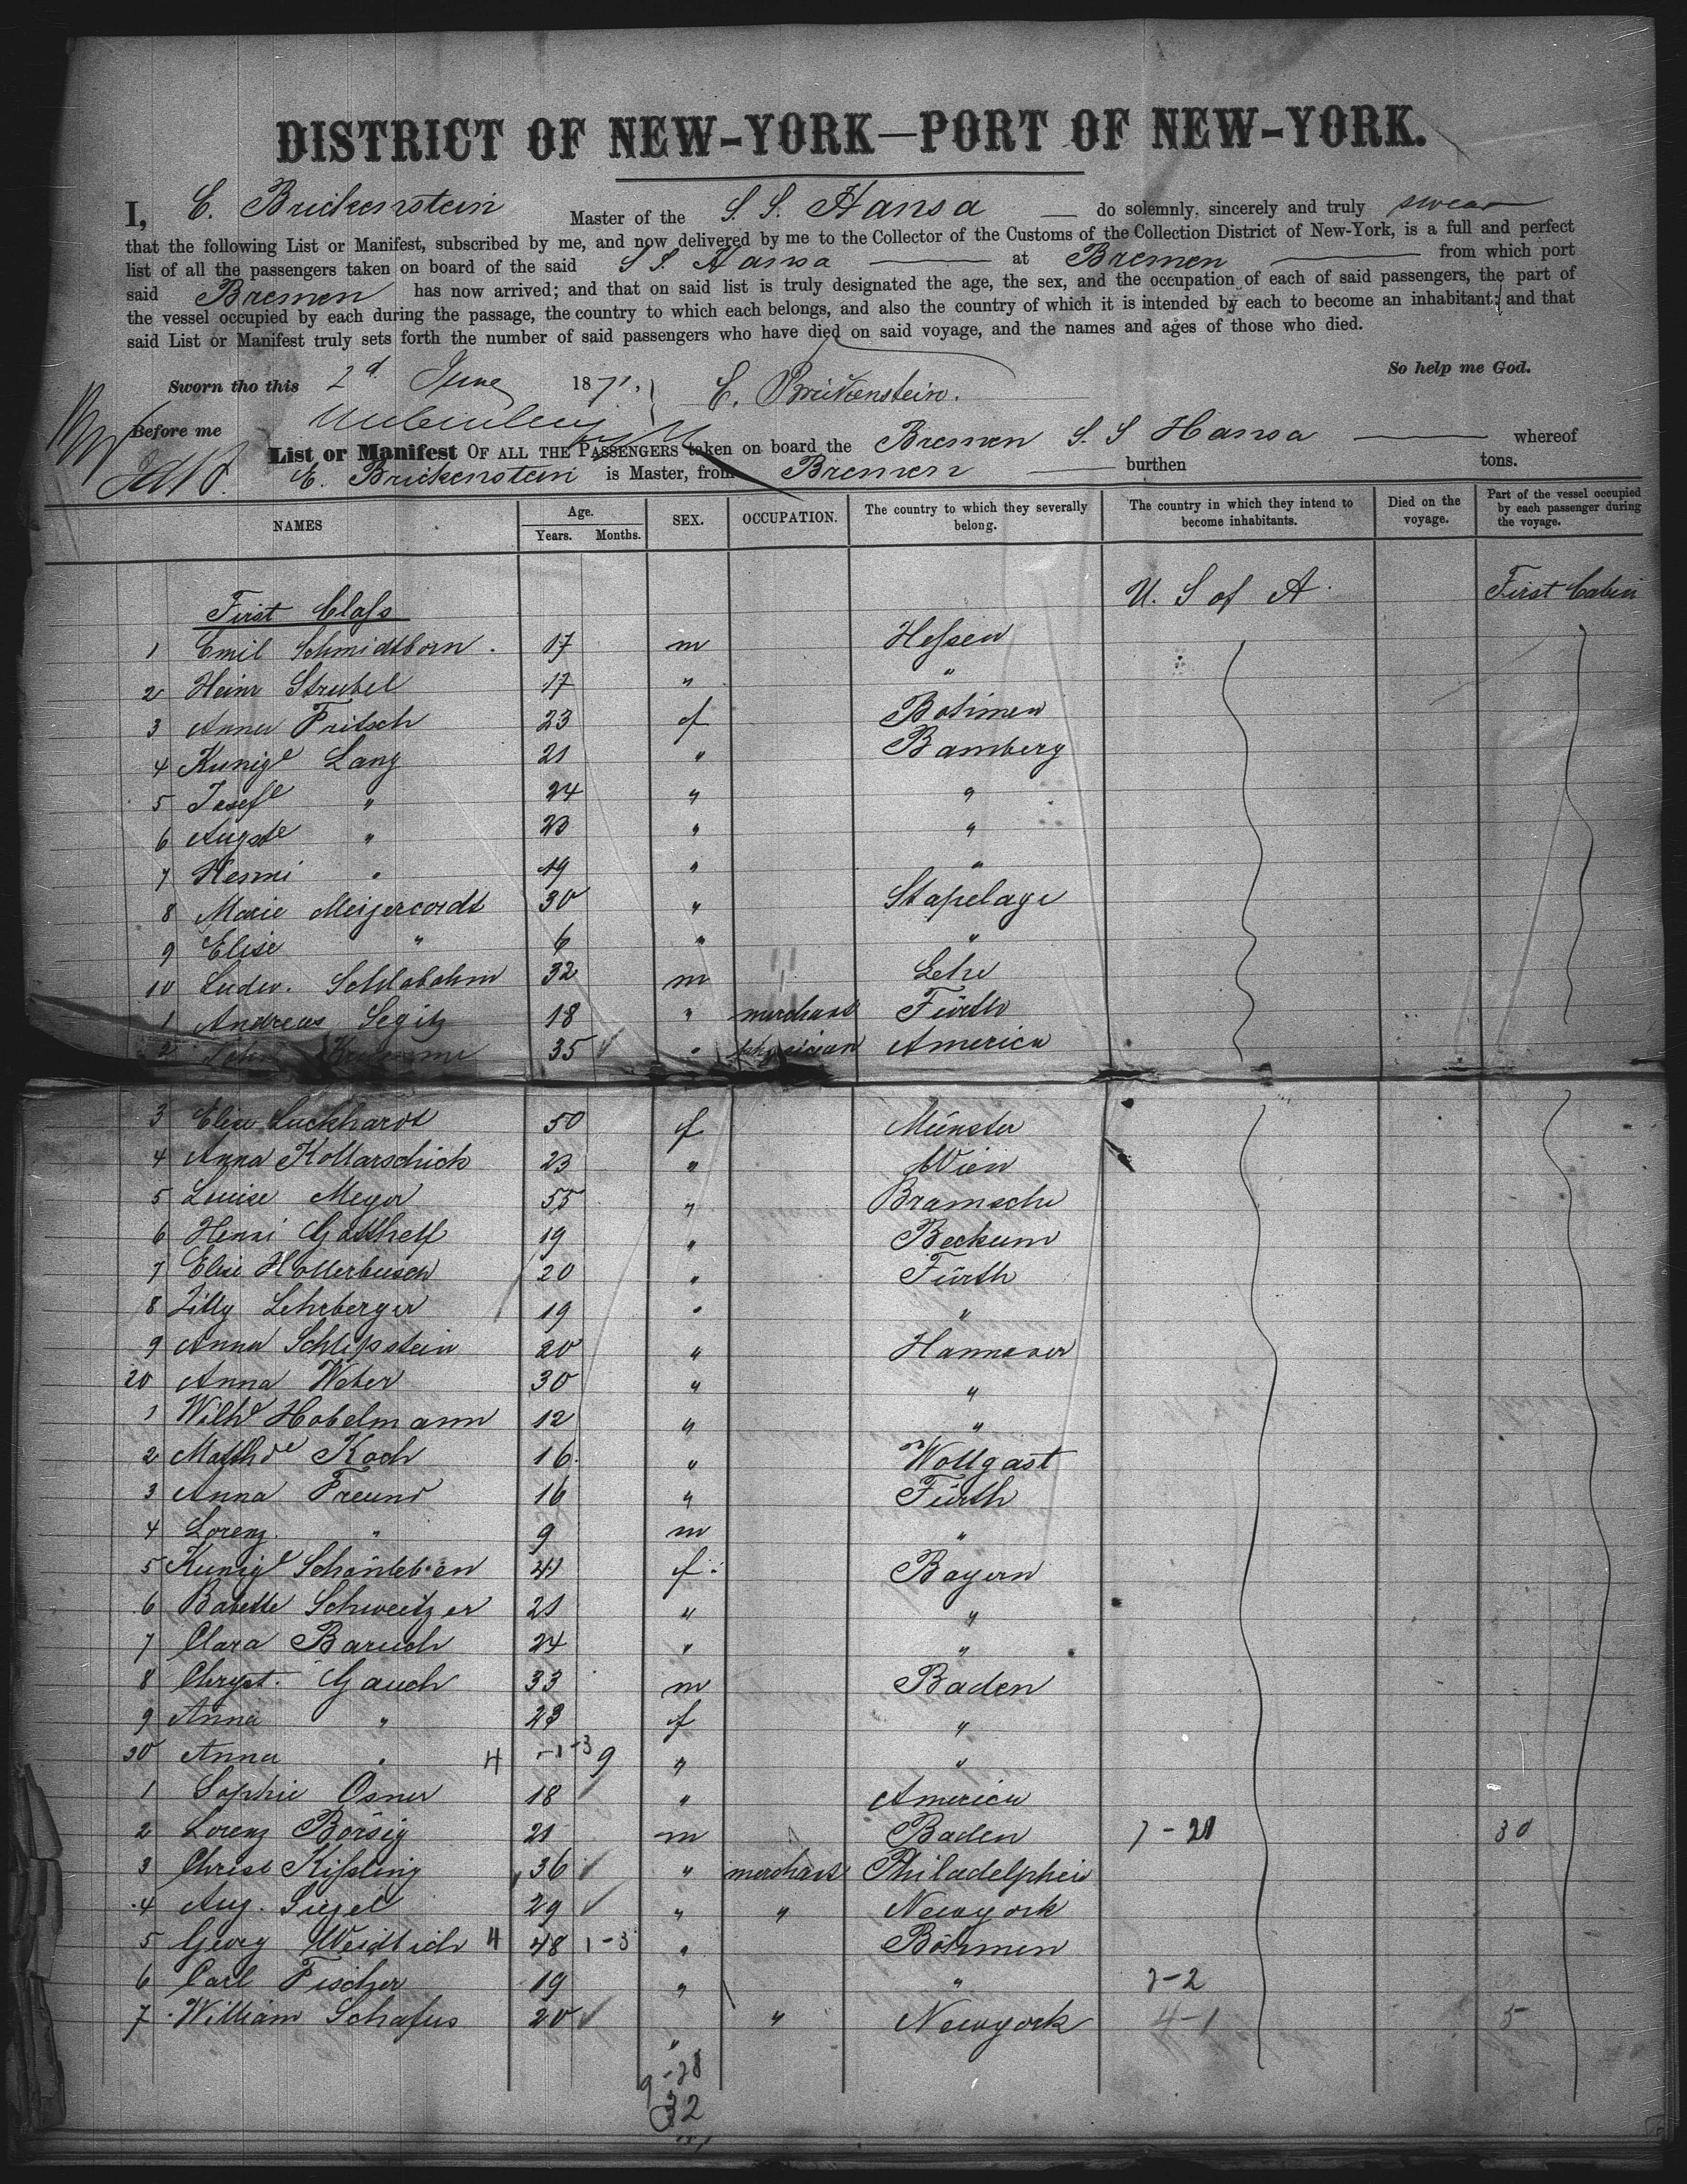 DISTRICT OF NEW-YORK—PORT OF NEW-YORK.
I, E. Brickenstein Master of the S. S. Hansa do solemnly, sincerely and truly swear
that the following List or Manifest, subscribed by me, and now delivered by me to the Collector of the Customs of the Collection District of New-York, is a full and perfect
list of all the passengers taken on board of the said S S. Hansa at Bremen from which port
said Bremen has now arrived; and that on said list is truly designated the age, the sex, and the occupation of each of said passengers, the part of
the vessel occupied by each during the passage, the country to which each belongs, and also the country of which it is intended by each to become an inhabitant; and that
said List or Manifest truly sets forth the number of said passengers who have died on said voyage, and the names and ages of those who died.
So help me God.
Sworn tho this 2d June 1871, E. Brickenstein.
Before me
List or Manifest OF ALL THE PASSENGERS taken on board the Bremen S. S Hansa whereof
E. Brickenstein is Master, from Bremen burthen tons.
NAMES Age. Years. Months. SEX. OCCUPATION. The country to which they severally belong. The country in which they intend to become inhabitants. Died on the voyage. Part of the vessel occupied by each passenger during the voyage.
First Class U. S of A First Cabin
1 Emil Schmidtborn. 17 m Hessen
2 Heinr Strubel 17 " "
3 Anna Fritsch 23 f Böhmen
4 Kunigle Lang 21 " Bamberg
5 Josefe " 24 " "
6 Augste " 23 " "
7 Henni " 19 " "
8 Marie Meijercordt 30 " Stapelage
9 Elise " 6 " "
10 Ludw. Schlobohm 32 m Lehe
1 Andreas Segitz 18 " merchant Fürth
2 John 35 " physician America
3 Elise Luckhardt 50 f Münster
4 Anna Kollarschick 23 " Wien
5 Luise Meyer 55 " Bramsche
6 Henni Gotthelf 19 " Beckum
7 Elise Hollerbusch 20 " Fürth
8 Zilly Lehrberger 19 " "
9 Anna Schlipstein 20 " Hannover
20 Anna Weber 30 " "
1 Wilhe Hobelmann 12 " "
2 Mathde Koch 16 " Wollgast
3 Anna Freund 16 " Fürth
4 Lorenz " 9 m "
5 Kunigl Schönleben 41 f Bayern
6 Babette Schweitzer 21 " "
7 Clara Baruch 24 " "
8 Chryst. Gauch 33 m Baden
9 Anna " 23 f "
30 Anna " 4 -1-3 9 " "
1 Sophie Osner 18 " America
2 Lorenz Börsig 21 m Baden 7-21 30
3 Christ Kissling 36 " merchant Philadelphia
4 Aug. Siegel 29 " " Newyork
5 Georg Weidlich 4 48 1-3 " Böhmen
6 Carl Fischer 19 " " 7-2
7 William Schafus 20 " " Newyork 4-1 5
32